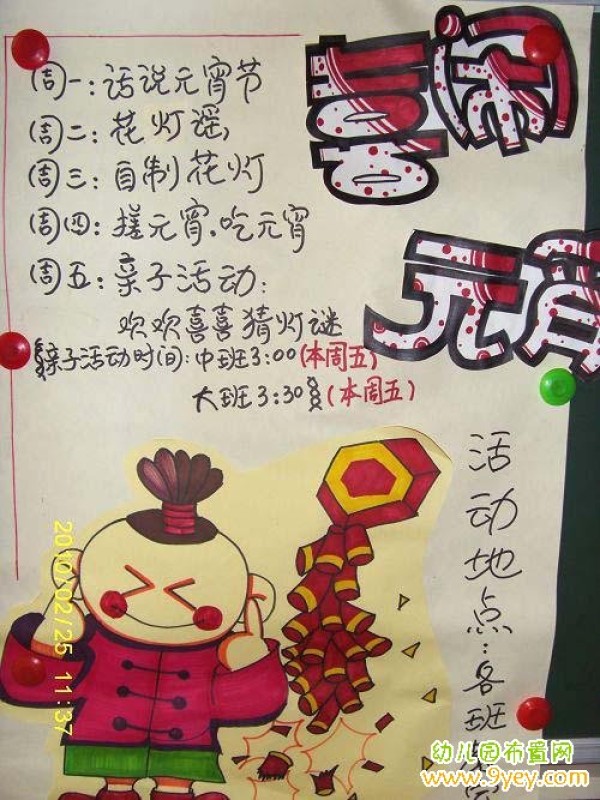 喜闹
元宵
周一:话说元宵节
周二:花灯谣,
周三:自制花灯
周四:搓元宵、吃元宵
周五:亲子活动:
欢欢喜喜猜灯谜
亲子活动时间:中班3:00(本周五)
大班3:30(本周五)
活动地点:各班
2010/02/25 11:37
幼儿园布置网
www.9yey.com